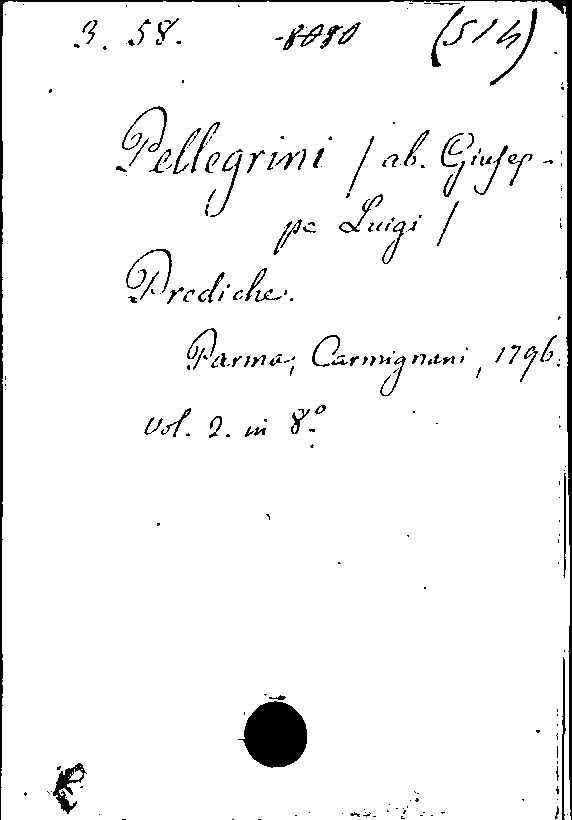 3. 58. 8080 (514)
Pellegrini / ab. Giusep-
pe Luigi /
Prediche.
Parma, Carmignani, 1796.
Vol. 2. in 8.º